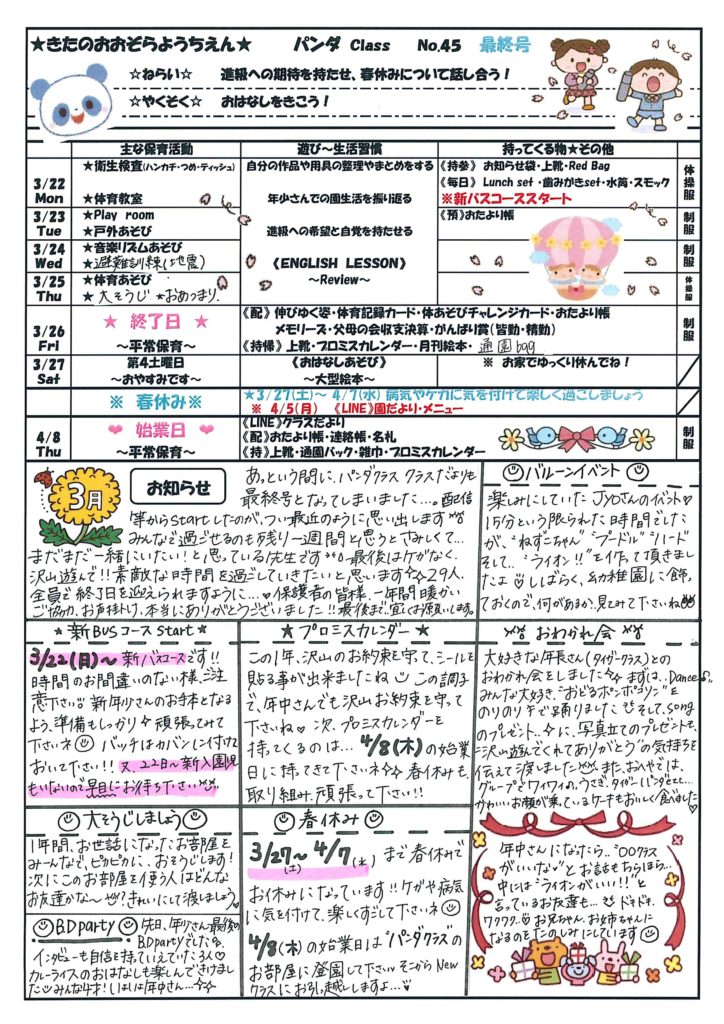 ★きたのおおぞらようちえん★ パンダ Class No.45 最終号
☆ねらい☆ 進級への期待を持たせ、春休みについて話し合う！
☆やくそく☆ おはなしをきこう！
主な保育活動 遊び～生活習慣 持ってくる物★その他
3/22 Mon
★衛生検査(ハンカチ・つめ・ティッシュ)
★体育教室
自分の作品や用具の整理やまとめをする
年少さんでの園生活を振り返る
《持参》 お知らせ袋・上靴・Red Bag
《毎日》 Lunch set・歯みがきset・水筒・スモック
※新バスコーススタート
体操服
3/23 Tue
★Play room
★戸外あそび
進級への希望と自覚を持たせる
《預》おたより帳
制服
3/24 Wed
★音楽リズムあそび
★避難訓練(地震)
《ENGLISH LESSON》
～Review～
制服
3/25 Thu
★体育あそび
★大そうじ ★おあつまり.
体操服
3/26 Fri
★ 終了日 ★
～平常保育～
《配》伸びゆく姿・体育記録カード・体あそびチャレンジカード・おたより帳
メモリーズ・父母の会収支決算・がんばり賞(皆勤・精勤)
《持帰》上靴・プロミスカレンダー・月刊絵本・通園bag
制服
3/27 Sat
第4土曜日
～おやすみです～
《おはなしあそび》
～大型絵本～
※ お家でゆっくり休んでね！
※ 春休み※
★3/27(土)～ 4/7(水) 病気やケガに気を付けて楽しく過ごしましょう
※ 4/5(月) 《LINE》園だより・メニュー
4/8 Thu
❤ 始業日 ❤
～平常保育～
《LINE》クラスだより
《配》おたより帳・連絡帳・名札
《持》上靴・通園バック・雑巾・プロミスカレンダー
制服
3月
お知らせ
あっという間に、パンダクラス クラスだよりも
最終号となってしまいました…。配信
等からStartしたのが、つい最近のように思い出します
みんなで過ごせるのも残り一週間と思うとさみしくて…
まだまだ一緒にいたい！と思っている先生です 最後はケガなく、
沢山遊んで!!素敵な時間を過ごしていきたいと思います☆☆29人
全員で終了日を迎えられますように…♡保護者の皆様、一年間暖かい
ご協力、お声掛け、本当にありがとうございました!!最後まで宜しくお願いします。
バルーンイベント
楽しみにしていたJyoさんのイベント♡
15分という限られた時間でした
が、“ねずこちゃん”“プードル”“ハード”
そして、“ライオン!!”を作って頂きまし
たよ しばらく、幼稚園に飾っ
ておくので、何があるか、見てみて下さいね
★新BUSコースStart★
3/22(月)～新バスコースです!!
時間のお間違いのない様、ご注
意下さい 新年少さんのお手本となる
よう、準備もしっかり☆頑張ってみて
下さいネ バッチはカバンに付けて
おいて下さい!! 又、22日～新入園児
もいないので早目にお待ち下さい
★プロミスカレンダー★
この1年、沢山のお約束を守って、シールを
貼る事が出来ましたね この調子
で、年中さんでも沢山お約束を守って
下さいね♡次、プロミスカレンダーを
持ってくるのは…4/8(木)の始業
日に持ってきて下さいネ☆☆春休みも、
取り組み頑張って下さい!!
おわかれ会
大好きな年長さん(タイガークラス)との
おわかれ会をしました☆まずは、Dance♪。
みんな大好き、“おどるポンポコリン”を
のりのりで踊りました そして、song
のプレゼント..☆に、写真立てのプレゼントも、
“沢山遊んでくれてありがとう”の気持ちを
伝えて渡しました また、おへやでは、
グループでワイワイ♪。うさぎ、タイガー、パンダetc...
かわいいお顔が乗っているケーキもおいしく食べました♡
大そうじしましょう
1年間、お世話になったお部屋を
みーんなで、ピカピカに、おそうじします!
次にこのお部屋を使う人はどんな
お友達かな～ ?きれいにして渡しましょう♡
BDparty
先日、年少さん最後の
BDpartyでした。
インタビューも自信を持っていえていた3人♡
カレーライスのおはなしも楽しんできけまし
た みんな4才！いよいよ年中さん…☆☆
春休み
3/27(土)～4/7(水)まで春休みで
お休みになっています!!ケガや病気
に気を付けて、楽しくすごして下さいネ
4/8(木)の始業日は“パンダクラス”の
お部屋に登園して下さい そこからNew
クラスにお引っ越しますよ…
年中さんになったら..“〇〇クラス
がいいな♡”とお話もちらほら…
中には“ライオンがいい!!”と
言っているお友達も… ドキドキ、
ワクワク…お兄ちゃん、お姉ちゃんに
なるのをたのしみにしています